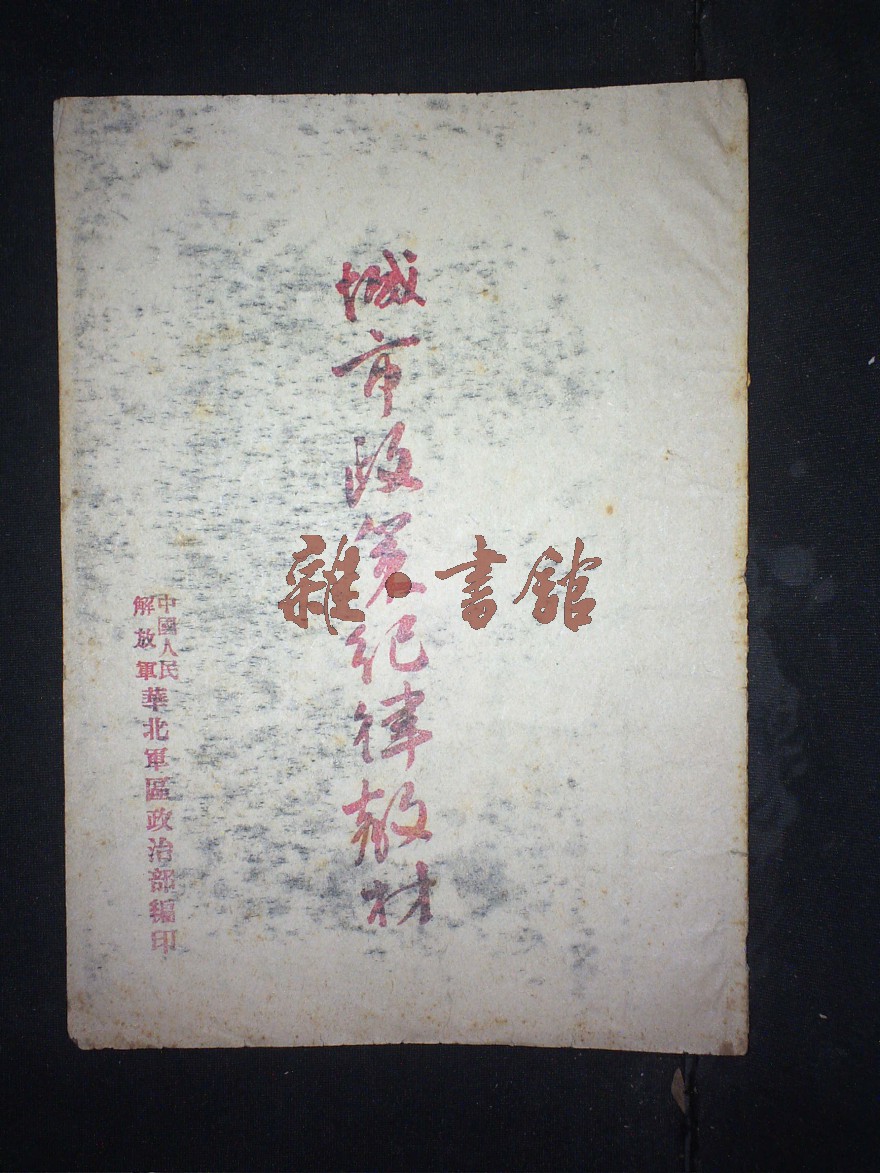 城市政策纪律教材
中國人民
解放軍
華北軍區政治部編印
雜·書館